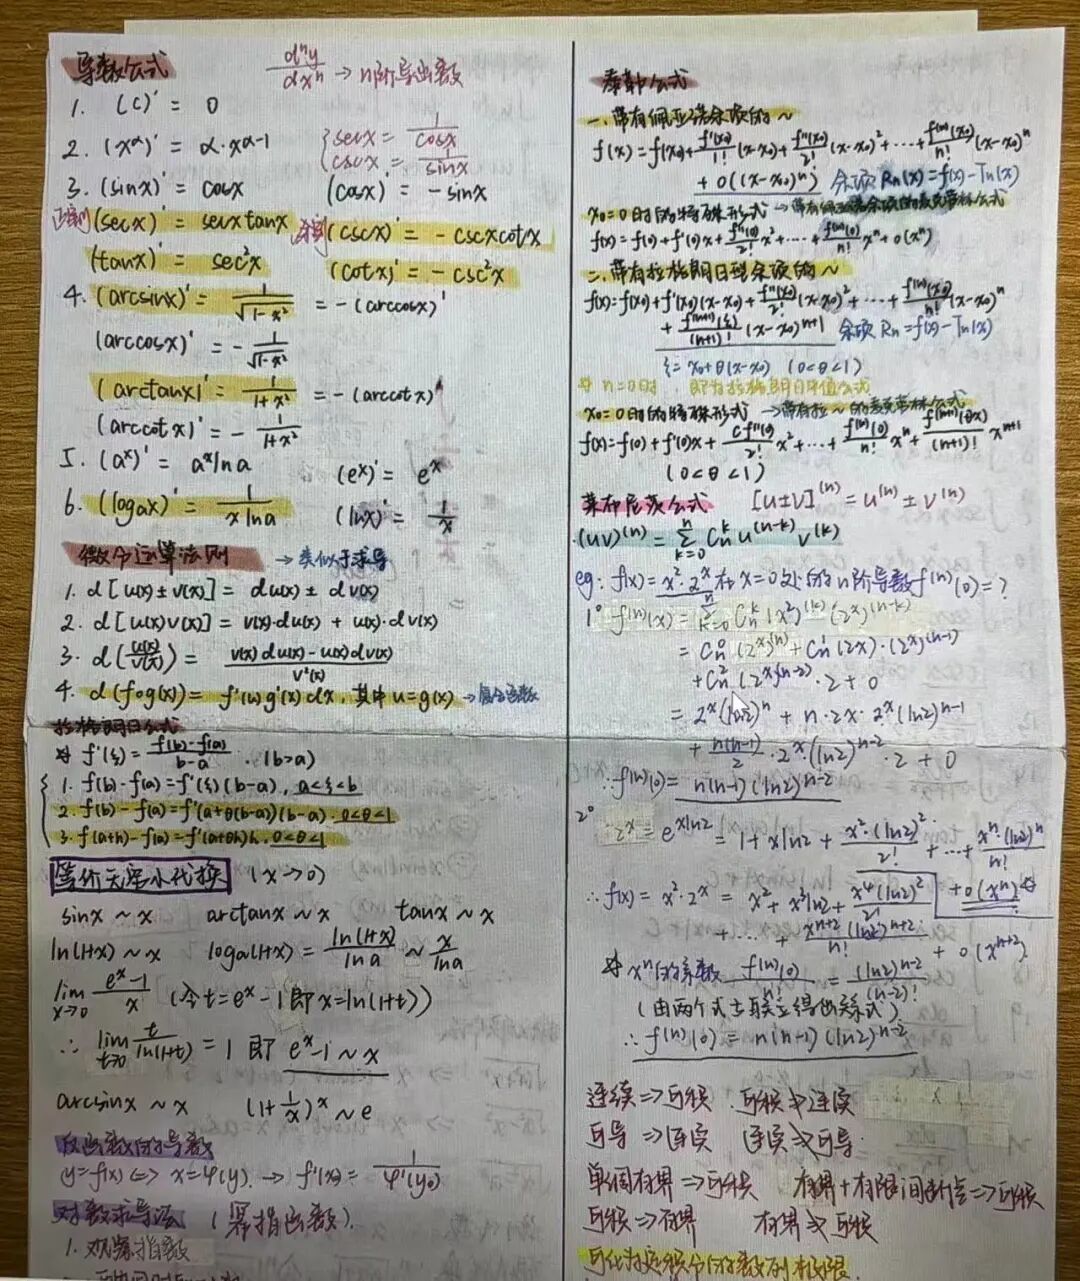 导数公式 dⁿy/dxⁿ → n阶导函数
1. (C)' = 0
2. (x^α)' = α·x^α-1 { secx = 1/cosx
cscx = 1/sinx
3. (sinx)' = cosx (cosx)' = -sinx
(secx)' = secxtanx (cscx)' = -cscxcotx
(tanx)' = sec²x (cotx)' = -csc²x
4. (arcsinx)' = 1/√(1-x²) = -(arccosx)'
(arccosx)' = -1/√(1-x²)
(arctanx)' = 1/(1+x²) = -(arccotx)'
(arccotx)' = -1/(1+x²)
5. (aˣ)' = aˣlna (eˣ)' = eˣ
6. (logax)' = 1/(xlna) (lnx)' = 1/x
微分运算法则 → 类似于求导
1. d[u(x)±v(x)] = du(x) ± dv(x)
2. d[u(x)v(x)] = v(x)·du(x) + u(x)·dv(x)
3. d(u(x)/v(x)) = (v(x)du(x) - u(x)dv(x))/v²(x)
4. d(fog(x)) = f'(u)g'(x)dx, 其中u=g(x) → 复合函数
拉格朗日公式
☆ f'(ξ) = (f(b)-f(a))/(b-a). (b>a)
1. f(b)-f(a)=f'(ξ)(b-a), a<ξ<b
2. f(b)-f(a)=f'(a+θ(b-a))(b-a). 0<θ<1
3. f(a+h)-f(a)=f'(a+θh)h. 0<θ<1
等价无穷小代换 (x→0)
sinx ~ x arctanx ~ x tanx ~ x
ln(1+x) ~ x loga(1+x) = ln(1+x)/lna ~ x/lna
lim x→0 (eˣ-1)/x (令t=eˣ-1 即x=ln(1+t))
∴ lim t→0 t/ln(1+t) = 1 即 eˣ-1 ~ x
arcsinx ~ x (1+1/x)ˣ ~ e
反函数的导数
y=f(x) <=> x=φ(y). → f'(x₀) = 1/φ'(y₀)
对数求导法 (幂指函数).
1. 观察指数
泰勒公式
一. 带有佩亚诺余项的~
f(x) = f(x₀) + f'(x₀)/1! (x-x₀) + f''(x₀)/2! (x-x₀)² + ··· + f⁽ⁿ⁾(x₀)/n! (x-x₀)ⁿ
+ o((x-x₀)ⁿ) 余项 Rn(x) = f(x)-Tn(x)
x₀=0时的特殊形式 → 带有佩亚诺余项的麦克劳林公式
f(x) = f(0) + f'(0)x + f''(0)/2! x² + ··· + f⁽ⁿ⁾(0)/n! xⁿ + o(xⁿ)
二. 带有拉格朗日型余项的~
f(x) = f(x₀) + f'(x₀)(x-x₀) + f''(x₀)/2! (x-x₀)² + ··· + f⁽ⁿ⁾(x₀)/n! (x-x₀)ⁿ
+ f⁽ⁿ⁺¹⁾(ξ)/(n+1)! (x-x₀)ⁿ⁺¹ 余项 Rn = f(x)-Tn(x)
ξ = x₀+θ(x-x₀) (0<θ<1)
☆ n=0时, 即为拉格朗日中值公式
x₀=0时的特殊形式 → 带有拉~的麦克劳林公式
f(x) = f(0) + f'(0)x + f''(0)/2! x² + ··· + f⁽ⁿ⁾(0)/n! xⁿ + f⁽ⁿ⁺¹⁾(θx)/(n+1)! xⁿ⁺¹
(0<θ<1)
莱布尼茨公式 [u±v]⁽ⁿ⁾ = u⁽ⁿ⁾ ± v⁽ⁿ⁾
(uv)⁽ⁿ⁾ = Σ k=0 n Cnᵏ u⁽ⁿ⁻ᵏ⁾ v⁽ᵏ⁾
eg: f(x) = x²·2ˣ在x=0处的n阶导数f⁽ⁿ⁾(0)=?
1° f⁽ⁿ⁾(x) = Σ k=0 n Cnᵏ (x²)⁽ᵏ⁾ (2ˣ)⁽ⁿ⁻ᵏ⁾
= Cn⁰ (2ˣ)⁽ⁿ⁾ + Cn¹ (2x)·(2ˣ)⁽ⁿ⁻¹⁾
+ Cn² (2ˣ)⁽ⁿ⁻²⁾·2 + 0
= 2ˣ(ln2)ⁿ + n·2x·2ˣ(ln2)ⁿ⁻¹
+ n(n-1)/2 · 2ˣ(ln2)ⁿ⁻²·2 + 0
∴ f⁽ⁿ⁾(0) = n(n-1)(ln2)ⁿ⁻²
2° 2ˣ = e^xln2 = 1 + xln2 + x²·(ln2)²/2! + ··· + xⁿ·(ln2)ⁿ/n!
∴ f(x) = x²·2ˣ = x² + x³ln2 + x⁴(ln2)²/2! + o(xⁿ) ☆
+ ··· + xⁿ⁺²(ln2)ⁿ⁺²/n! + o(xⁿ⁺²).
☆ xⁿ的系数 f⁽ⁿ⁾(0)/n! = (ln2)ⁿ⁻²/(n-2)!
(由两个式子联立得出等式)
∴ f⁽ⁿ⁾(0) = n(n-1)(ln2)ⁿ⁻²
连续 => 可积 可积 ≠> 连续
可导 => 连续 连续 ≠> 可导
单调有界 => 可积 有界+有限间断点 => 可积
可积 => 有界 有界 ≠> 可积
可化为定积分的数列极限